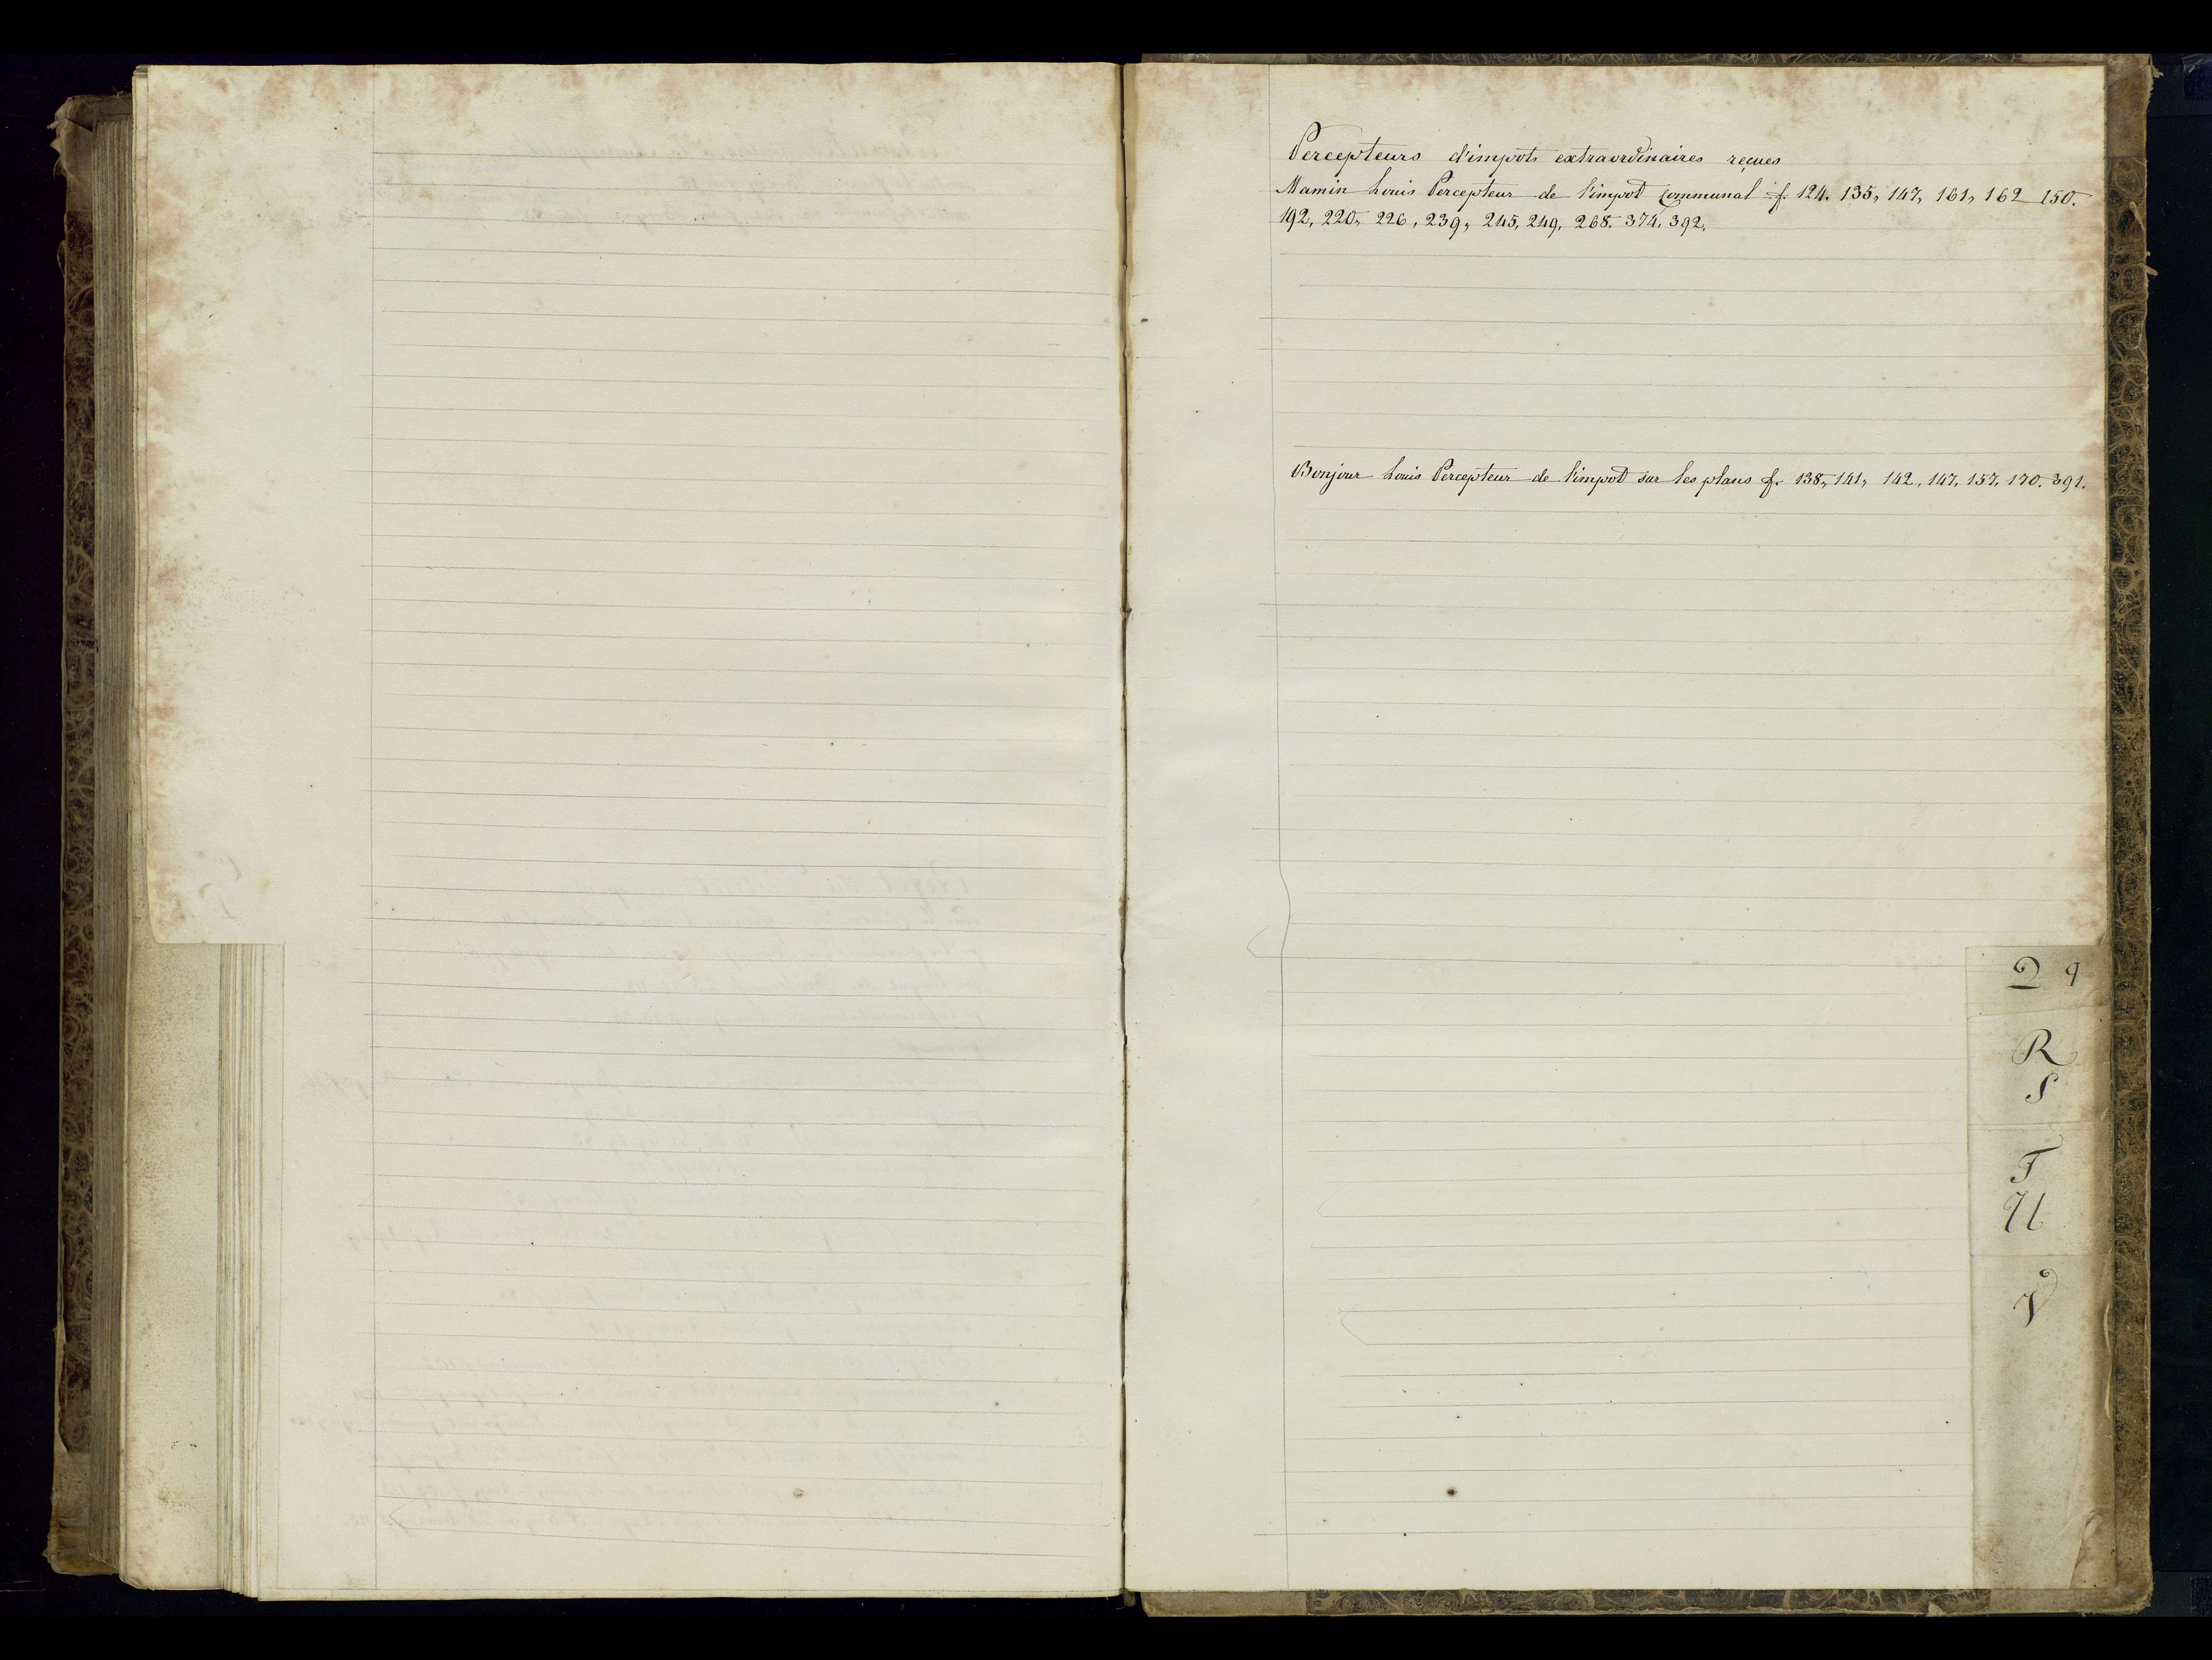 Percepteurs d'impots extraordinaires reçues
Mamin Louis Percepteur de l'impot Communal f. 124. 135, 147, 161, 162 150.
192, 220, 226, 239, 245, 249, 268. 374. 392.
Bonjour Louis Percepteur de l'impot sur les plans f. 138, 141, 142, 147, 157, 170. 391.
Q q
R
S
T
U
V